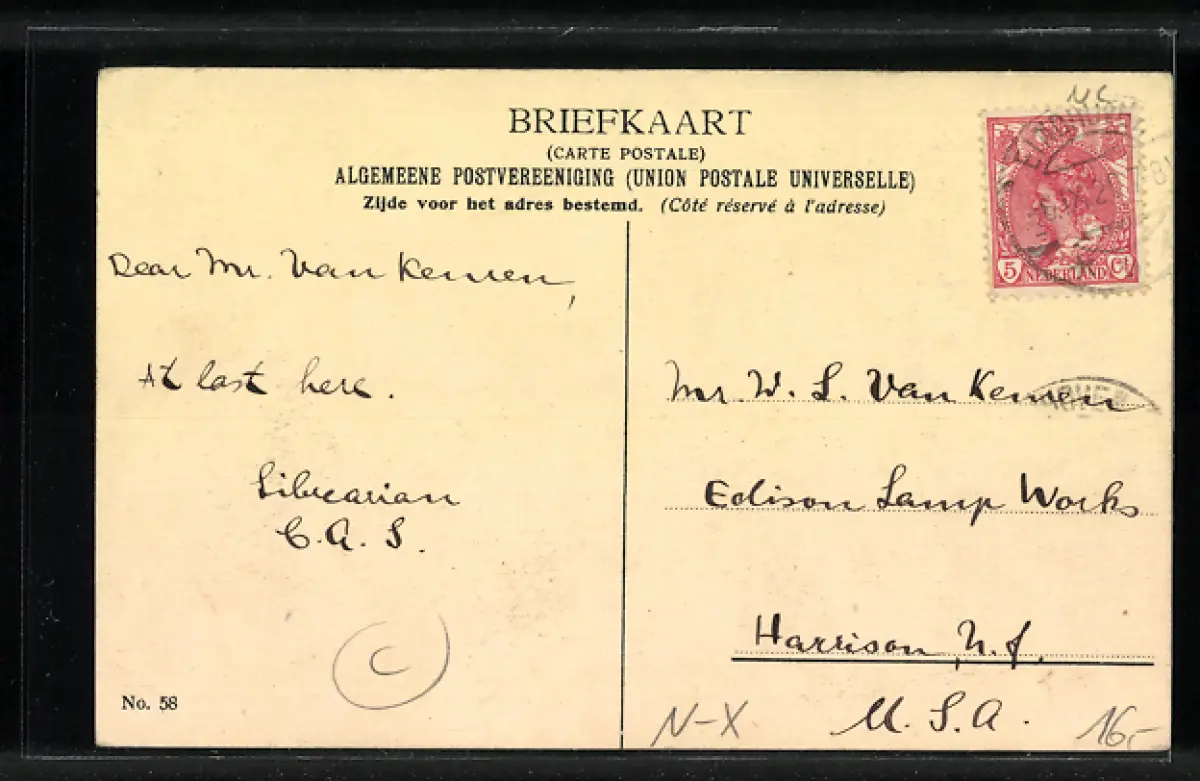 BRIEFKAART
(CARTE POSTALE)
ALGEMEENE POSTVEREENIGING (UNION POSTALE UNIVERSELLE)
Zijde voor het adres bestemd. (Côté réservé à l'adresse)
5 NEDERLAND Ct
Dear Mr. Van Kemen,
At last here.
Librarian
C. A. S.
No. 58
C
Mr. W. S. Van Kemen
Edison Lamp Works
Harrison, N. J.
U. S. A.
N-X
16,-